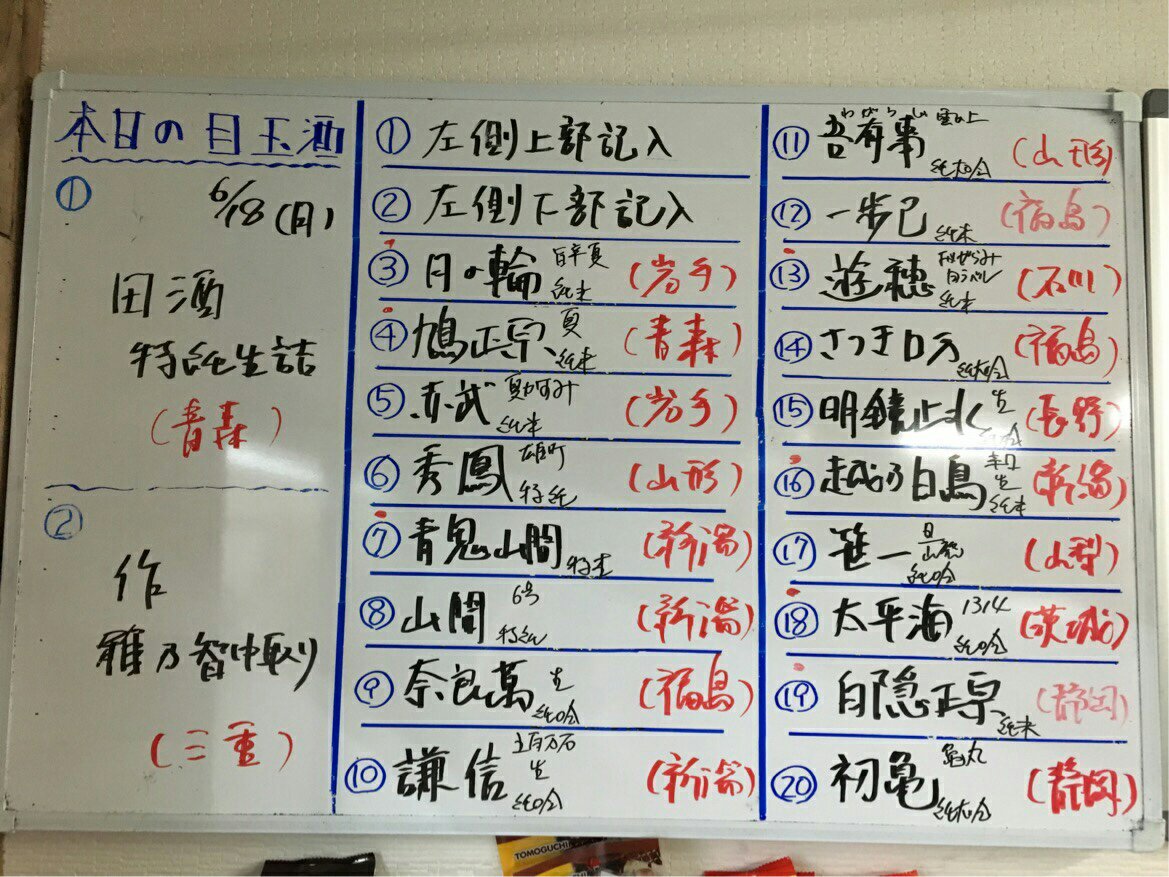 本日の目玉酒
①
6/18(月)
田酒
特純生詰
(青森)
②
作
雅乃智中取り
(三重)
① 左側上部記入
② 左側下部記入
③ 月の輪 純米 (岩手)
④ 鳩正宗 夏 純米 (青森)
⑤ 赤武 夏かすみ 純米 (岩手)
⑥ 秀鳳 雄町 特純 (山形)
⑦ 青鬼山間 (新潟)
⑧ 山間 6号 特純 (新潟)
⑨ 奈良萬 生 純吟 (福島)
⑩ 謙信 五百万石 生 純吟 (新潟)
⑪ 吾有事 わがうじ 雲の上 純大吟 (山形)
⑫ 一歩己 純米 (福島)
⑬ 遊穂 白ラベル 純米 (石川)
⑭ さつき 純大吟 (福島)
⑮ 明鏡止水 生 (長野)
⑯ 越乃白鳥 辛口 生 純米 (新潟)
⑰ 笹一 純吟 (山梨)
⑱ 太平海 1314 純吟 (茨城)
⑲ 白隠正宗 純米 (静岡)
⑳ 初亀 亀丸 純大吟 (静岡)
TOMOGUCHI